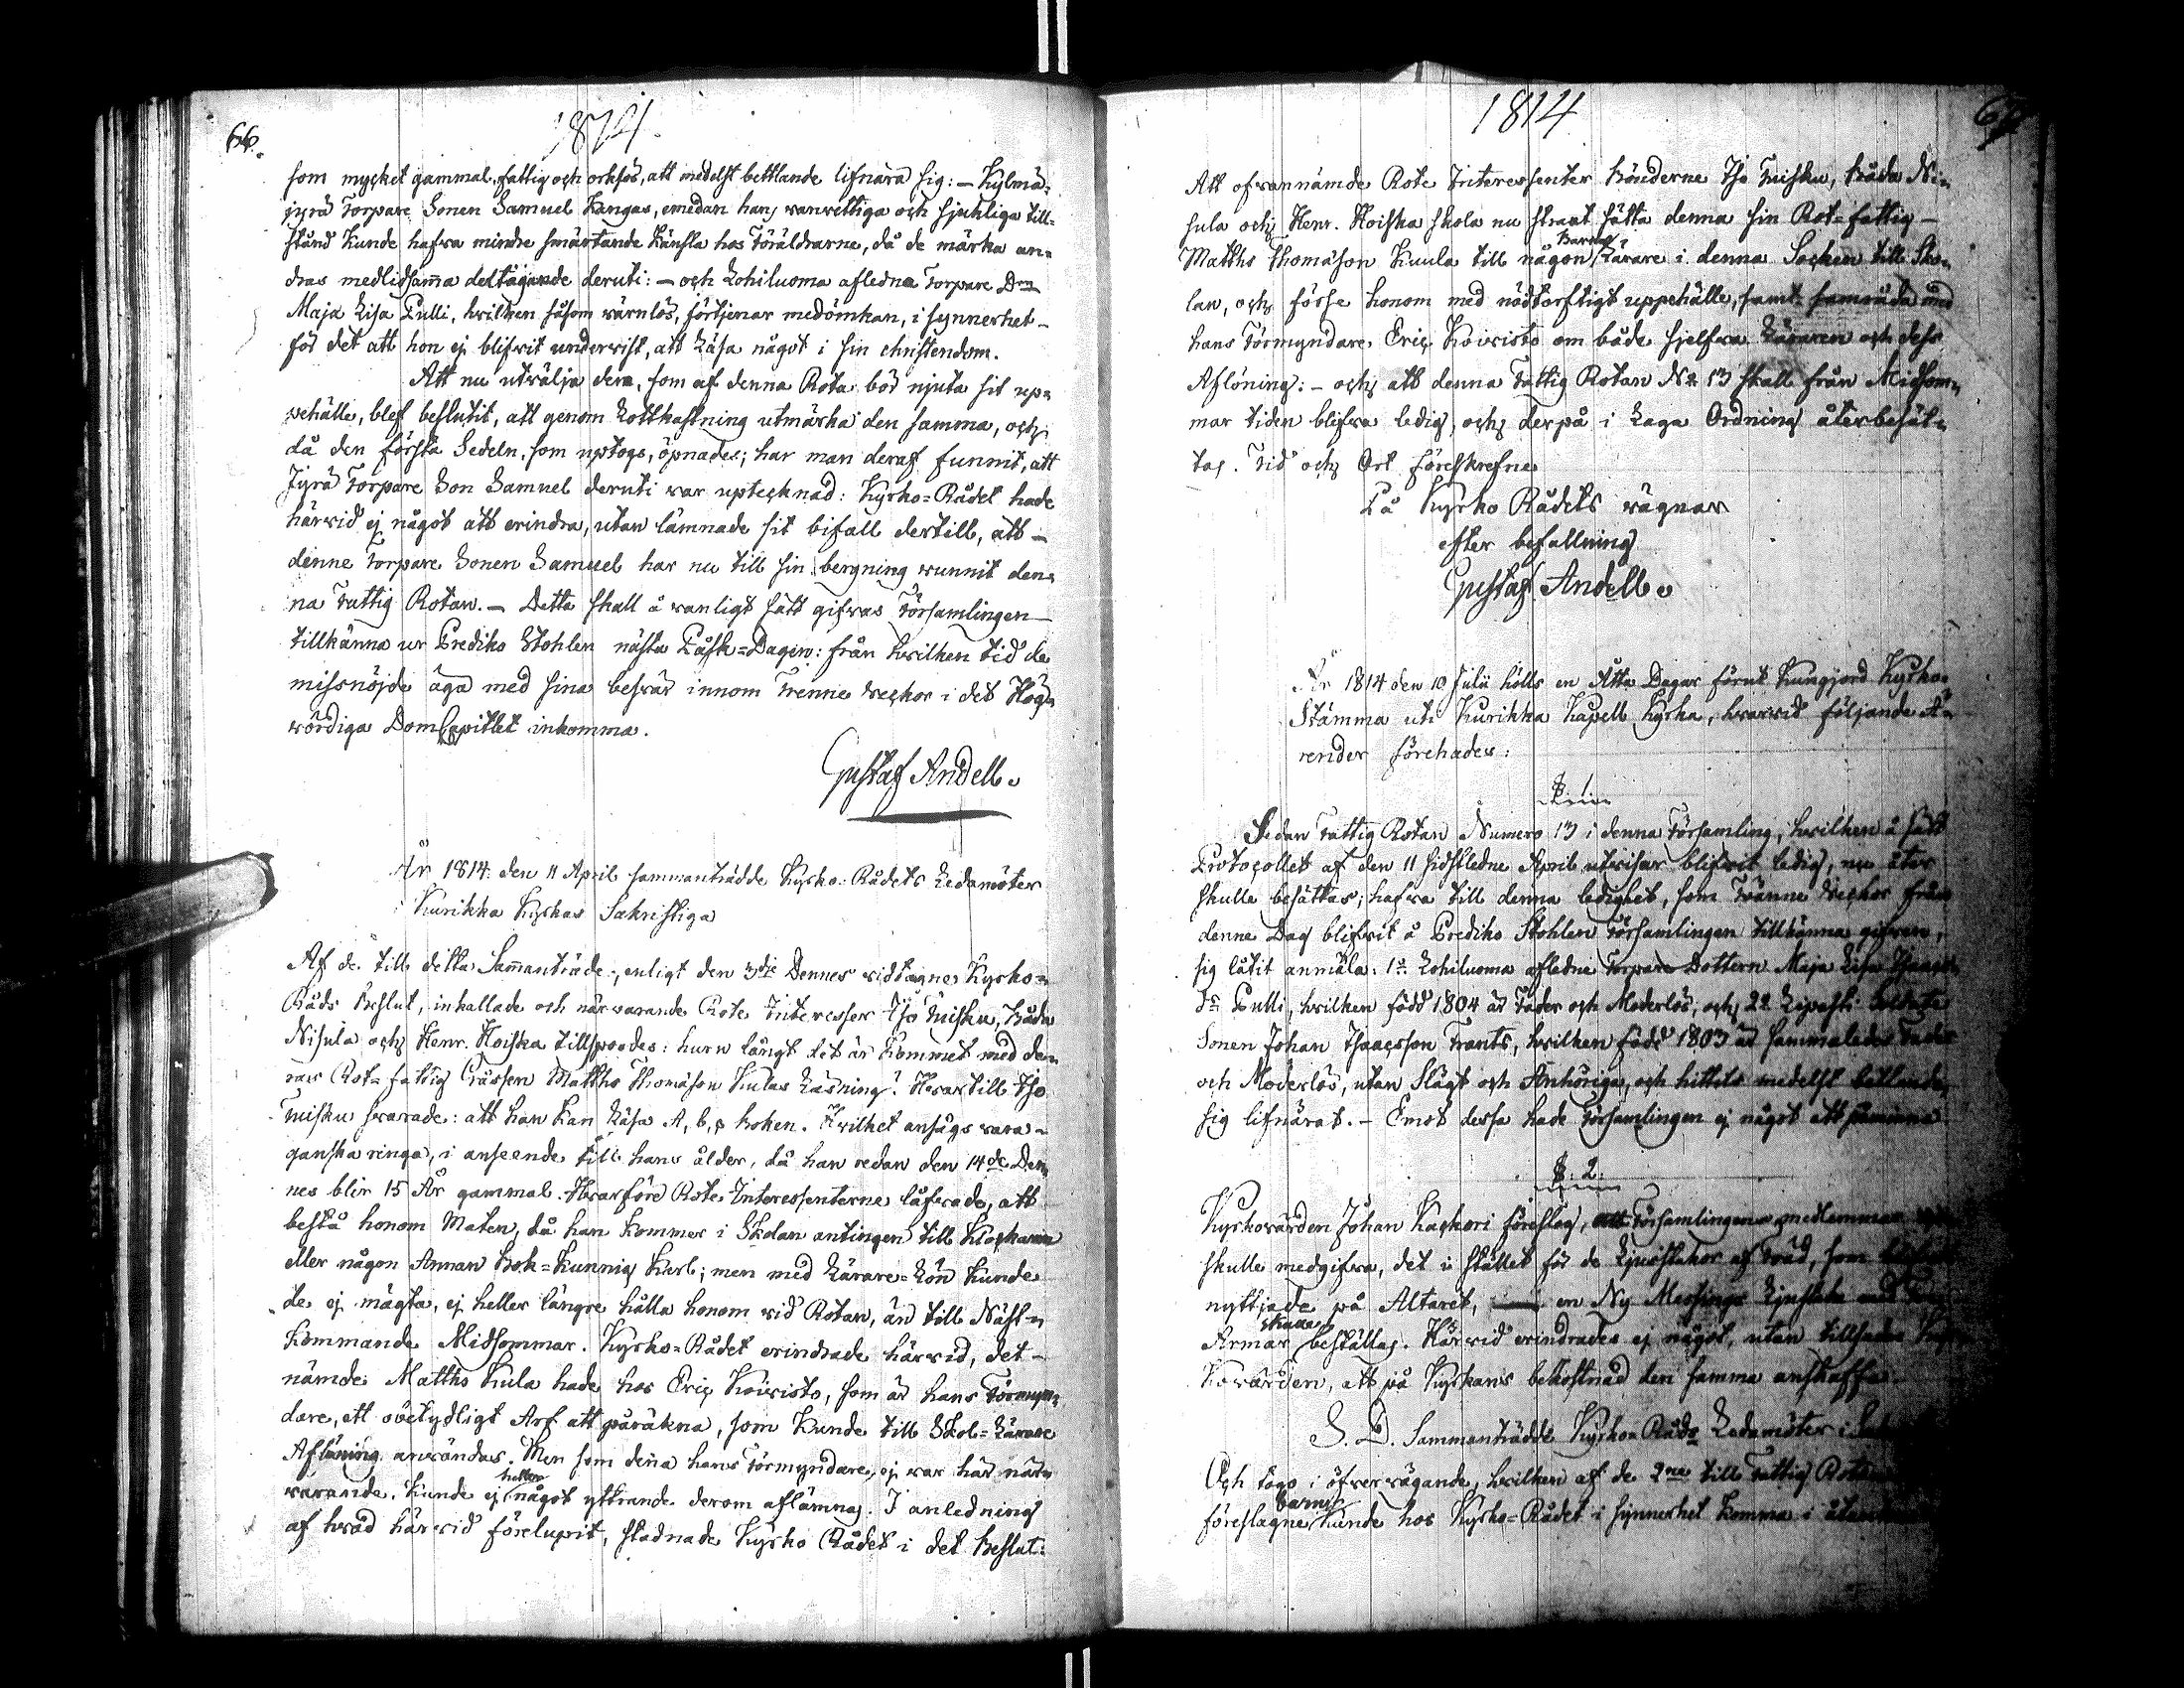 66.
1814.
som mycket gammal, fattig och orkeslös, att medelst bettlande lifnära sig: — Kylmä-
jyrä Torpare Sonen Samuel Kangas, emedan hans wanvettiga och sjukliga till-
stånd kunde hafva mindre smärtande känsla hos Föräldrarne, då de märka an-
dras medlidsamma deltagande deruti: — och Lohiluoma afledna Torpare Drn
Maja Lisa Pulli, hvilken såsom wärnlös, förtjenar medömkan, i synnerhet
för det att hon ej blifvit underwist, att Läsa något i sin christendom.
Att nu utvälja den, som af denna Rota bör njuta sit up-
pehälle, blef beslutit, att genom Lottkastning utmärka den samma, och
då den första Sedeln, som uptogs, öpnades; har man deraf funnit, att
Jyrä Torpare Son Samuel deruti war uptecknad: Kyrko-Rådet hade
härvid ej något att erindra, utan lämnade sit bifall dertill, att —
denne Torpare Sonen Samuel har nu till sin bergning wunnit den-
na Fattig Rotan. — Detta skall å wanligt sätt gifvas Församlingen
tillkänna ur Prediko Stohlen nästa Påsk-Dagen: från hvilken tid de
missnöjde äga med sina besvär innom Trenne Weckor i det Hög-
wördiga DomCapitlet inkomma.
Gustaf Andell.
År 1814 den 11 April sammanträdde Kyrko-Rådets Ledamöter
i Kurikka Kyrkas Sakristiga
Af de till detta Sammanträde, enligt den 3die Dennes vidtagne Kyrko-
Råds Beslut, inkallade och närvarande Rote Interesser Iso Miska, Båda
Nisula och Henr. Koiska tillspordes: huru långt det är kommet med de-
ras Rot-fattig Matths Thomäson Kulas Läsning? Hvartill Iso
Miska swarade: att han kan Läsa A, b, c boken. Hvilket ansågs vara
ganska ringa, i anseende till hans ålder, då han redan den 14de Den-
nes blir 15 År gammal. Hvarföre Rote Interessenterne låfvade, att
bestå honom Maten, då han kommer i Skolan antingen till Klockaren
eller någon Annan Bok-Kunnig Karl; men med Lärare-Lön kunde
de ej mägta, ej heller längre hålla honom vid Rotan, än till Näst-
kommande Midsommar. Kyrko-Rådet erindrade härvid, det —
nämde Matths Kula hade hos Eric Koivisto, som är hans Förmyn-
dare, ett obetydligt Arf att påräkna, som kunde till Skol-Lärare
Aflöning användas. Men som denna hans Förmyndare, ej var här när-
varande, kunde ej heller något yttrande derom aflämnas. I anledning
af hvad härvid förelupit, stadnade Kyrko Rådet i det Beslut:
67
1814
Att ofvannämde Rote Interessenter Bönderne Iso Miska, Båda Ni-
sula och Henr. Koiska skola nu straxt sätta denna sin Rot-fattig —
Matths Thomäson Kuula till någon Barna Lärare i denna Socken till Sko-
lan, och förse honom med nödtorftigt uppehälle, samt samråda med
hans Förmyndare Eric Koivisto om både sjelfva Läraren och dess
Aflöning: — och att denna Fattig Rotan No 13 skall från Midsom-
mar tiden blifva ledig, och derpå i Laga Ordning återbesät-
tas. Tid och Ort föreskrefne
På Kyrko Rådets wägnar
efter befallning
Gustaf Andell.
År 1814 den 10 Julii hölls en Åtta Dagar förut kungjord Kyrko-
Stämma uti Kurikka Kapell Kyrka, hvarvid följande Ä-
render förehades:
§. 1.
Sedan Fattig Rotan Numero 13 i denna Församling, hvilken å sätt
Protocollet af den 11 sidstledne April utvisar blifvit ledig, nu åter
skulle besättas; hafva till denna ledighet, som Tvänne Weckor från
denne Dag blifvit å Prediko Stohlen Församlingen tillkänna gifven,
sig låtit anmäla: 1o Lohiluoma afledne Torpare Dottern Maja Lisa Isaacs
dr Pulli, hvilken född 1804 är Fader och Moderlös; och 2o Soldate
Sonen Johan Isaacsson Frants, hvilken född 1803 är sammaledes Fader
och Moderlös, utan Slägt och Anhöriga, och hittils medelst bettlande
sig lifnärat. — Emot dessa hade Församlingen ej något att påminna
§. 2.
Kyrkovärden Johan Kackori föreslog, att Församlingens medlemmar
skulle medgifva, det i stället för de Ljusstakar af träd, som
nyttjade på Altaret, en Ny Messings Ljusstake med
Armar skulle beställas. Härvid erindrades ej något, utan tillsades Kyr-
kovärden, att på Kyrkans bekostnad den samma anskaffa.
S. D. Sammanträdde Kyrko Råds Ledamöter i
Och togs i öfvervägande, hvilken af de 2ne till Fattig Rotan
föreslagne barn kunde hos Kyrko-Rådet i synnerhet komma i